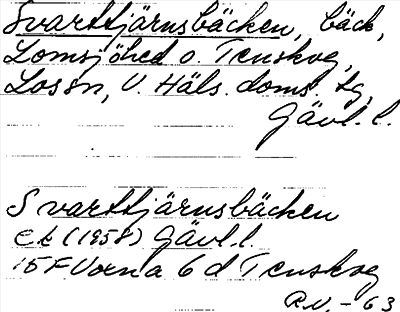 Svarttjärnsbäcken, bäck,
Lomsjöhed o. Tenskog,
Losson, V. Häls. doms. tg,
Gävl. l.
Svarttjärnsbäcken
Ek (1958) Gävl. l.
15F Vorna 6 d Tenskog
R.N. - 63